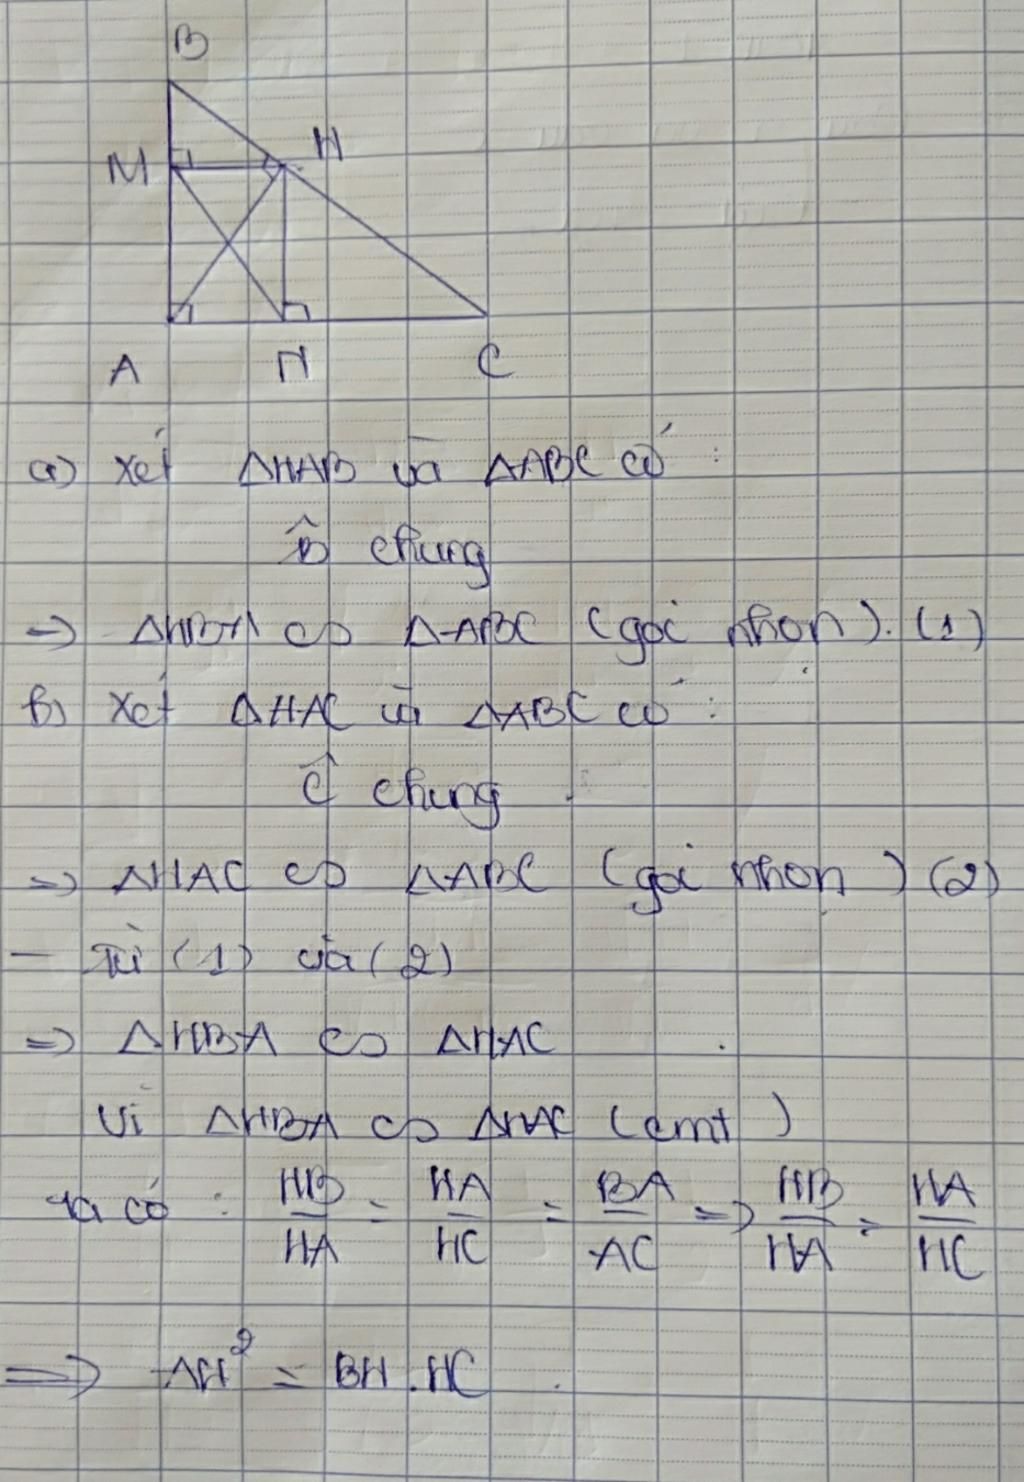 B
M H
A N C
a) Xét ΔHAB và ΔABC có :
B̂ chung
=> ΔHBA ∽ ΔABC (góc nhọn). (1)
b) Xét ΔHAC và ΔABC có :
Ĉ chung
=> ΔHAC ∽ ΔABC (góc nhọn) (2)
- Từ (1) và (2)
=> ΔHBA ∽ ΔHAC
Vì ΔHBA ∽ ΔHAC (cmt)
ta có : HB/HA = HA/HC = BA/AC => HB/HA = HA/HC
=> AH² = BH.HC